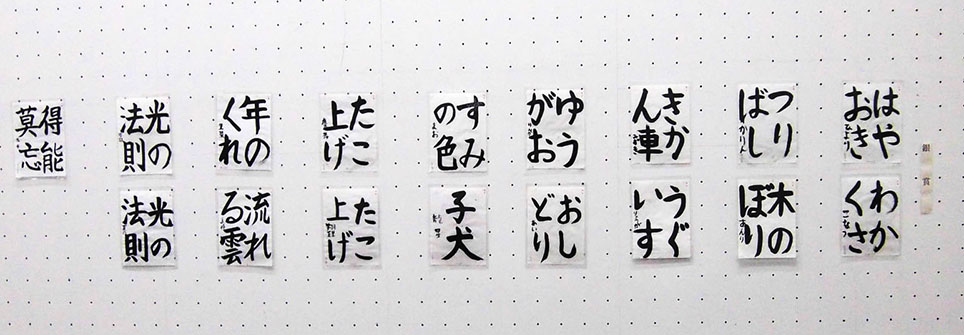 銀賞
はや
おき
つり
ばし
きか
ん車
ゆう
がお
すみ
の色
たこ
上げ
年の
くれ
光の
法則
得能
莫忘
わか
くさ
木の
ぼり
うぐ
いす
おし
どり
子犬
たこ
上げ
流れ
る雲
光の
法則